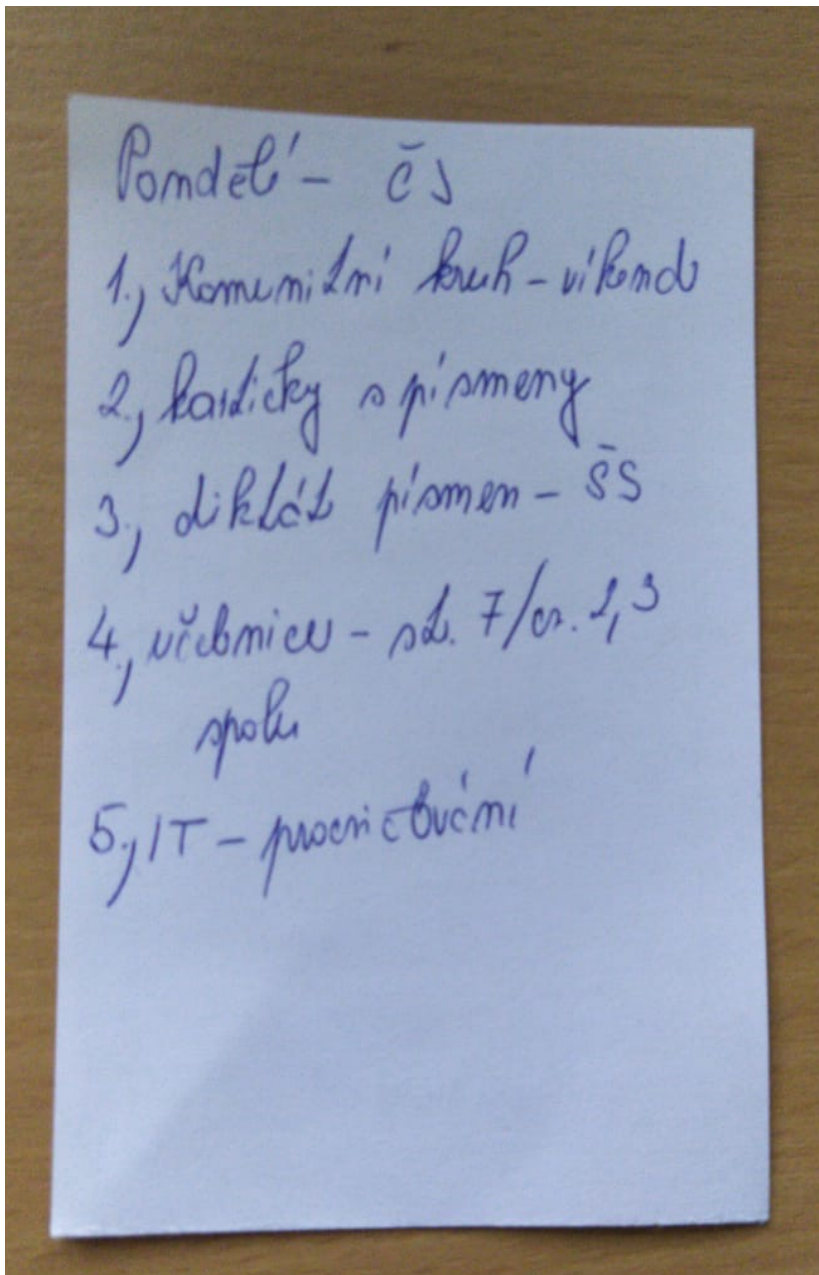 Pondělí - ČJ
1., Komunitní kruh - víkend
2., kartičky s písmeny
3., diktát písmen - ŠS
4., učebnice - st. 7/cv. 2, 3
spolu
5., IT - procvičování